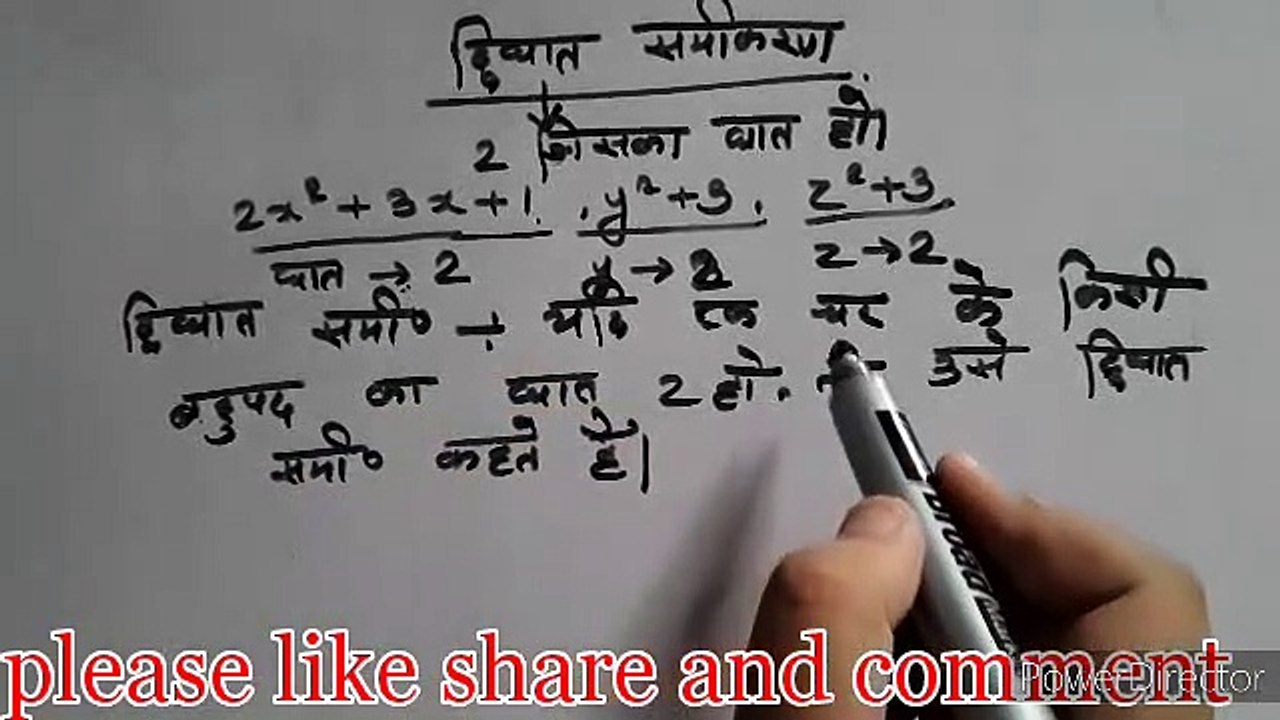 द्विघात समीकरण
2 जिसका घात हो।
2x² + 3x + 1, y² + 3, z² + 3,
घात → 2 y → 2 z → 2
द्विघात समी० ÷ यदि एक चर के किसी
बहुपद का घात 2 हो, उसे द्विघात
समी० कहते है।
please like share and comment
PowerDirector